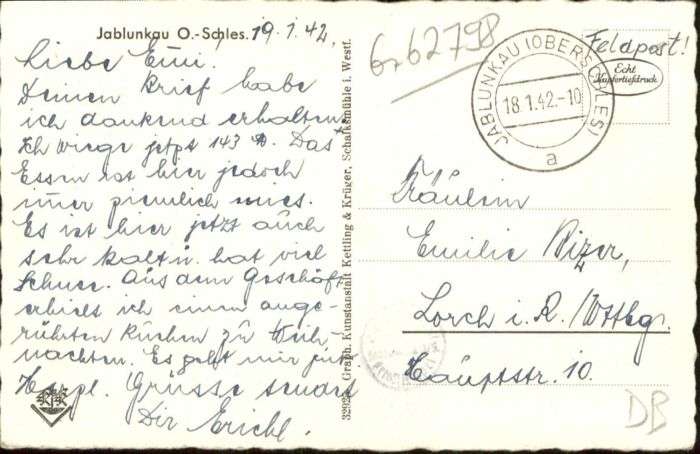 Jablunkau O.-Schles. 19.1.42.
Liebe Emi.
Deinen Brief habe
ich dankend erhalten.
Ich wiege jetzt 143 ℔. Das
Essen ist hier jedoch
imer ziemlich mies.
Es ist hier jetzt auch
sehr kalt u. hat viel
Schnee. Aus dem Geschäft
erhielt ich einen ange-
rührten Kuchen zu Weih-
nachten. Es geht mir gut
Herzl. Grüsse sendet
Dir Erich.
32922 Graph. Kunstanstalt Kettling & Krüger, Schalksmühle i. Westf.
6262798
JABLUNKAU (OBERSCHLES)
18.1.42.-10
a
Feldpost!
Echt
Kupfertiefdruck
Fräulein
Emilie Pizer,
Lorch i. R./Wttbg.
Hauptstr. 10.
DB